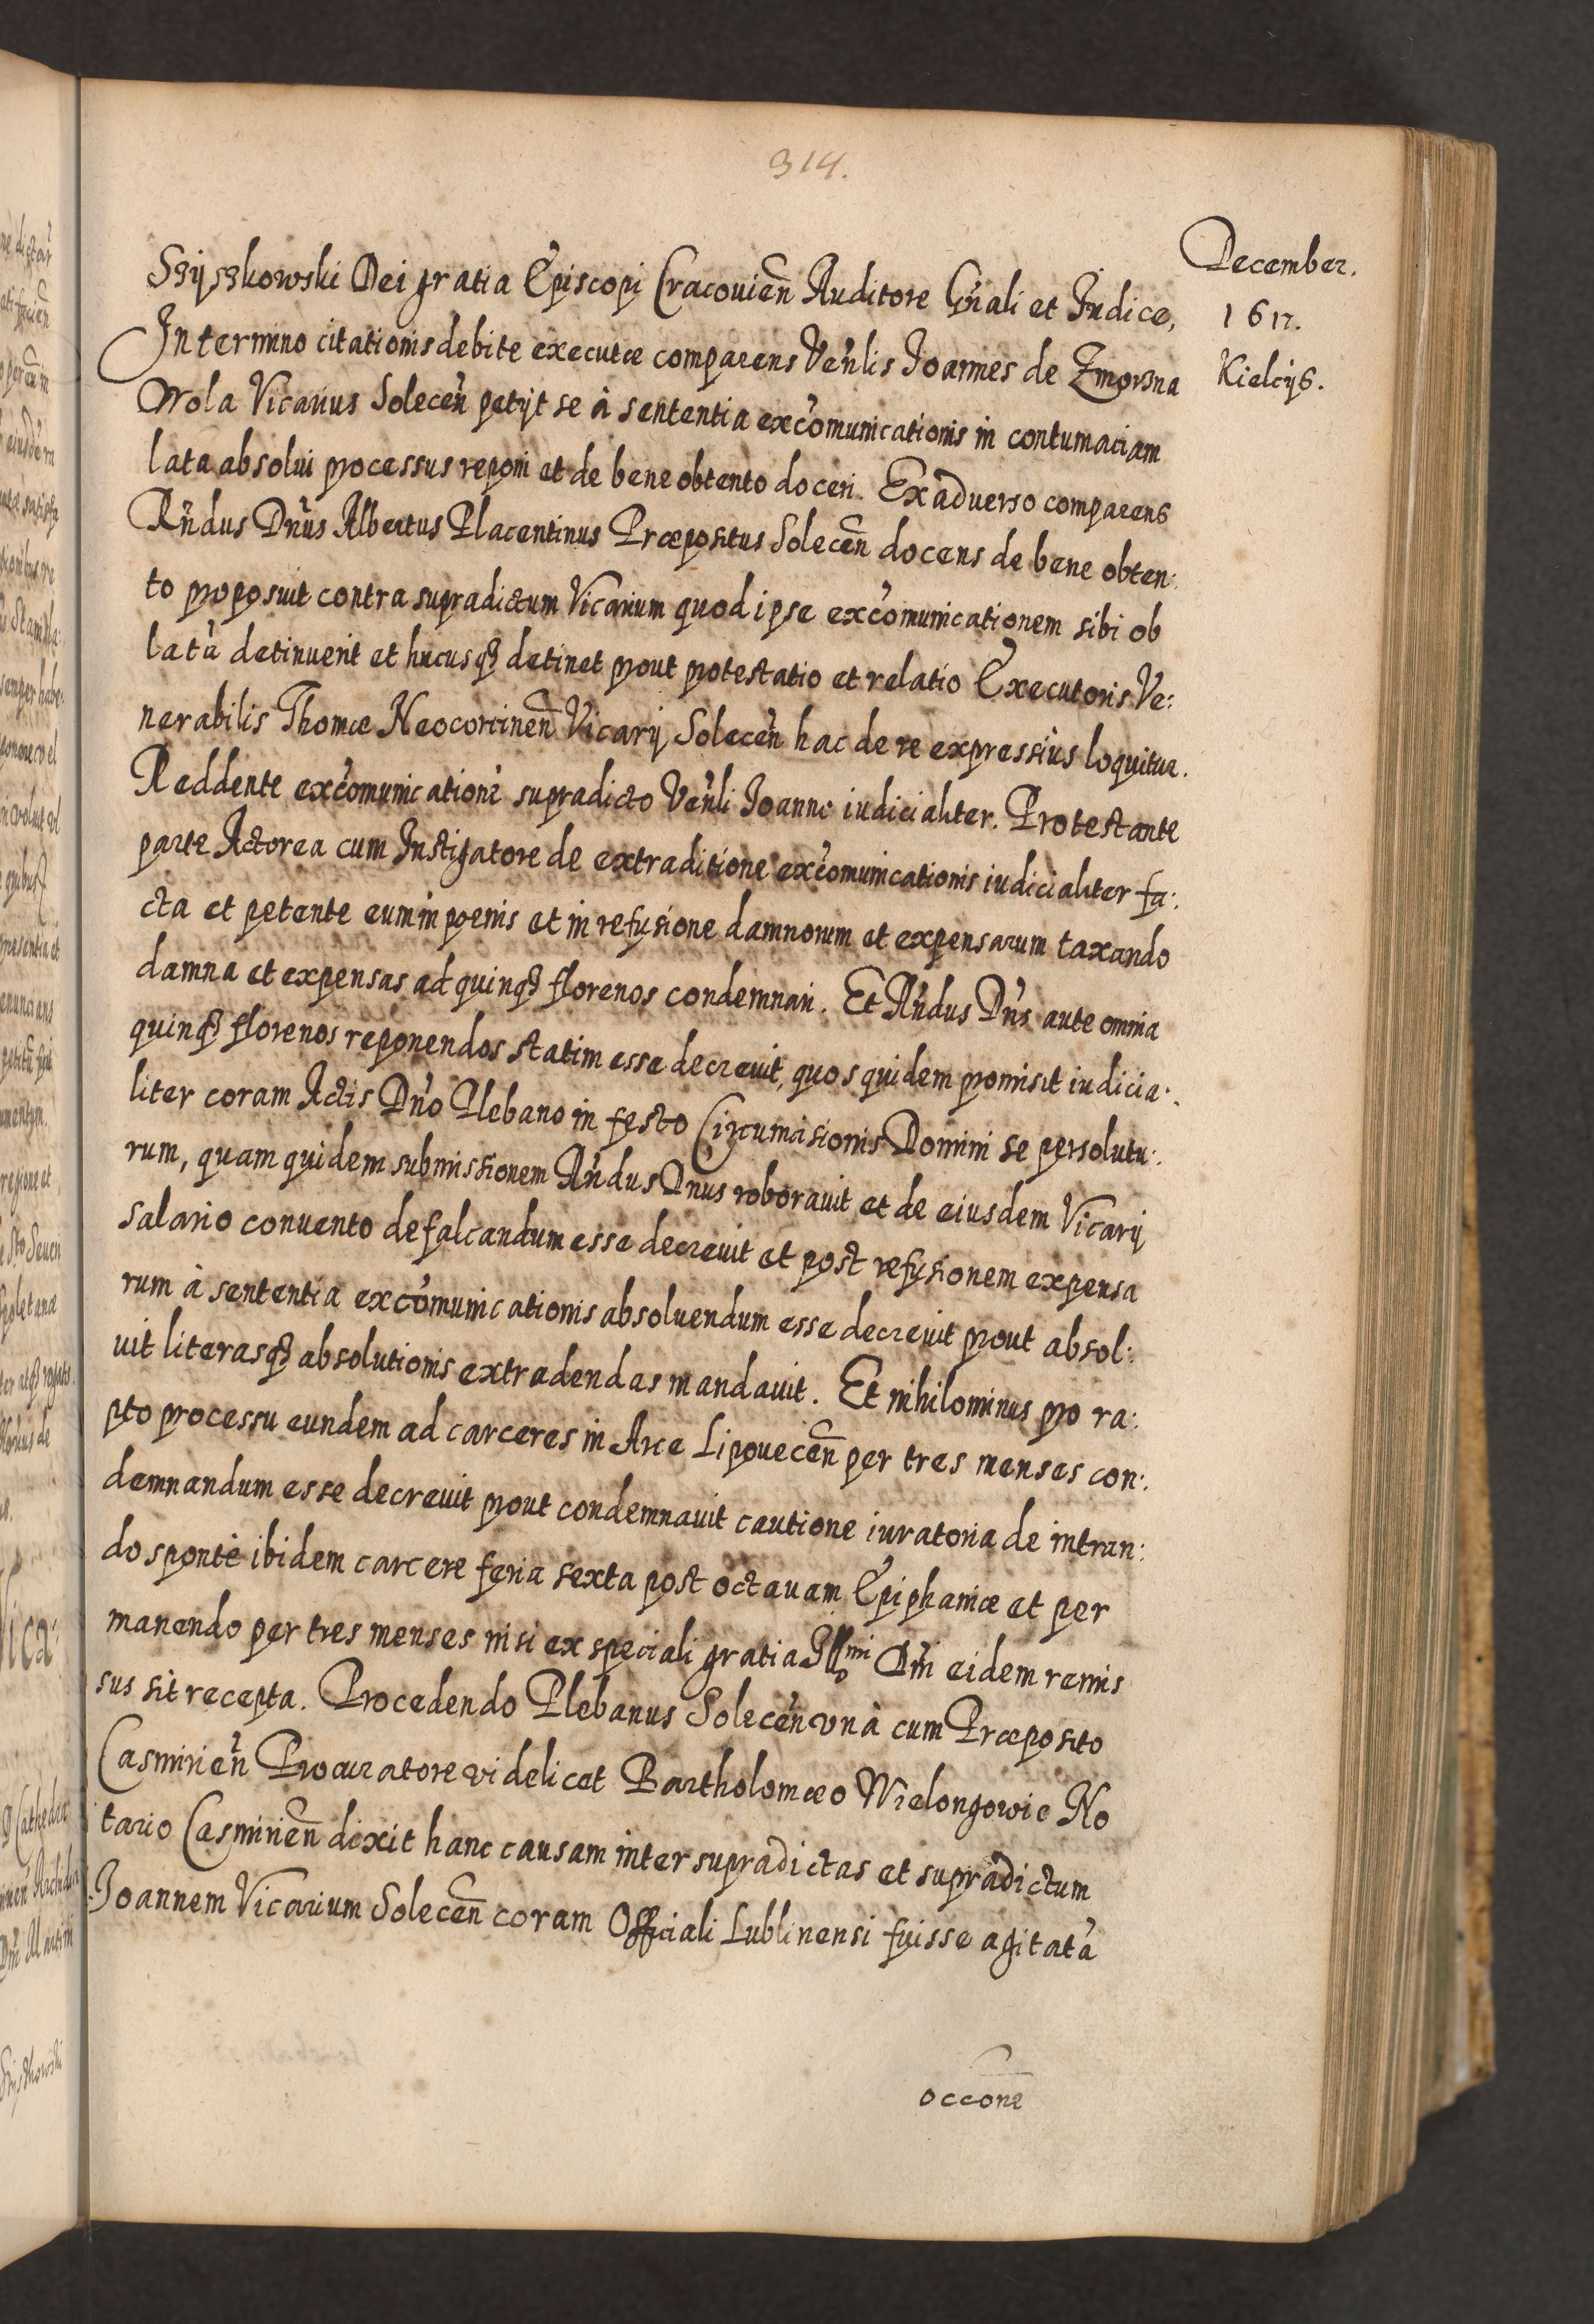 314.
December.
1617.
Kielcijs.
Szÿszkowski Dei gratia Episcopi Cracouien̄ Auditore Gn̄ali et Iudice,
In termino citationis debite executæ comparens Ven̄lis Joannes de Zmorzna
Wola Vicarius Solecen̄ petÿt se à sententia excōmunicationis in contumaciam
lata absolui processus reponi et de bene obtento doceri. Ex aduerso comparens
Rn̄dus Dn̄us Albertus Placentinus Præpositus Solecen̄ docens de bene obten:
to proposuit contra supradictum Vicarium quod ipse excōmunicationem sibi ob
latā detinuerit et hucusqꝫ detinet prout protestatio et relatio Executoris Ve:
nerabilis Thomæ Neocorcinen̄ Vicarij Solecen̄ hac de re expressius loquitur.
Reddente excōmunicationē supradicto Ven̄li Joanne iudicialiter. Protestante
parte Actorea cum Instigatore de extraditione excōmunicationis iudicialiter fa:
cta et petente eum in poenis et in refusione damnorum et expensarum taxando
damna et expensas ad quinqꝫ florenos condemnari. Et Rn̄dus Dn̄s ante omnia
quinqꝫ florenos reponendos statim esse decreuit, quos quidem promisit iudicia:
liter coram Actis Dn̄o Plebano in festo Circumcisionis Domini se persolutu:
rum, quam quidem submissionem Rn̄dus Dnus roborauit et de eiusdem Vicarij
salario conuento defalcandum esse decreuit et post refusionem expensa
rum à sententia excōmunicationis absoluendum esse decreuit prout absol:
uit literasqꝫ absolutionis extradendas mandauit. Et nihilominus pro ra:
pto processu eundem ad carceres in Arce Lipouecen̄ per tres menses con:
demnandum esse decreuit prout condemnauit cautione iuratoria de intran:
do sponte ibidem carcere feria sexta post octauam Epiphaniæ et per
manendo per tres menses nisi ex speciali gratia Illmi Dn̄i eidem remis
sus sit recepta. Procedendo Plebanus Solecen̄ vnà cum Præposito
Casmirien̄ Procuratore videlicet Bartholomæo Wielongowic No
tario Casmirien̄ dixit hanc causam inter supradictas et supradictum
Joannem Vicarium Solecen̄ coram Officiali Lublinensi fuisse agitatā
occōne